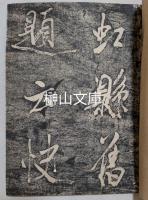 虹縣舊
題云快
榊山文庫